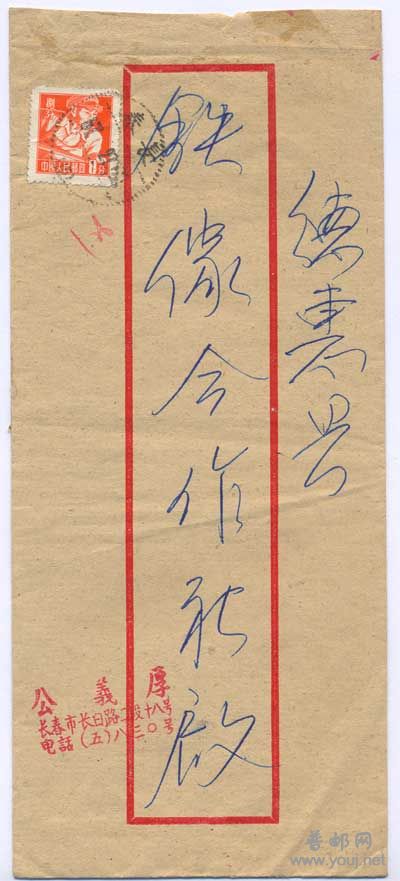 德惠县
鉄傢合作社啟
捌
中国人民邮政
8分
公義厚
长春市长白路二段十八号
电話(五)八三〇号
普邮网
www.youj.net